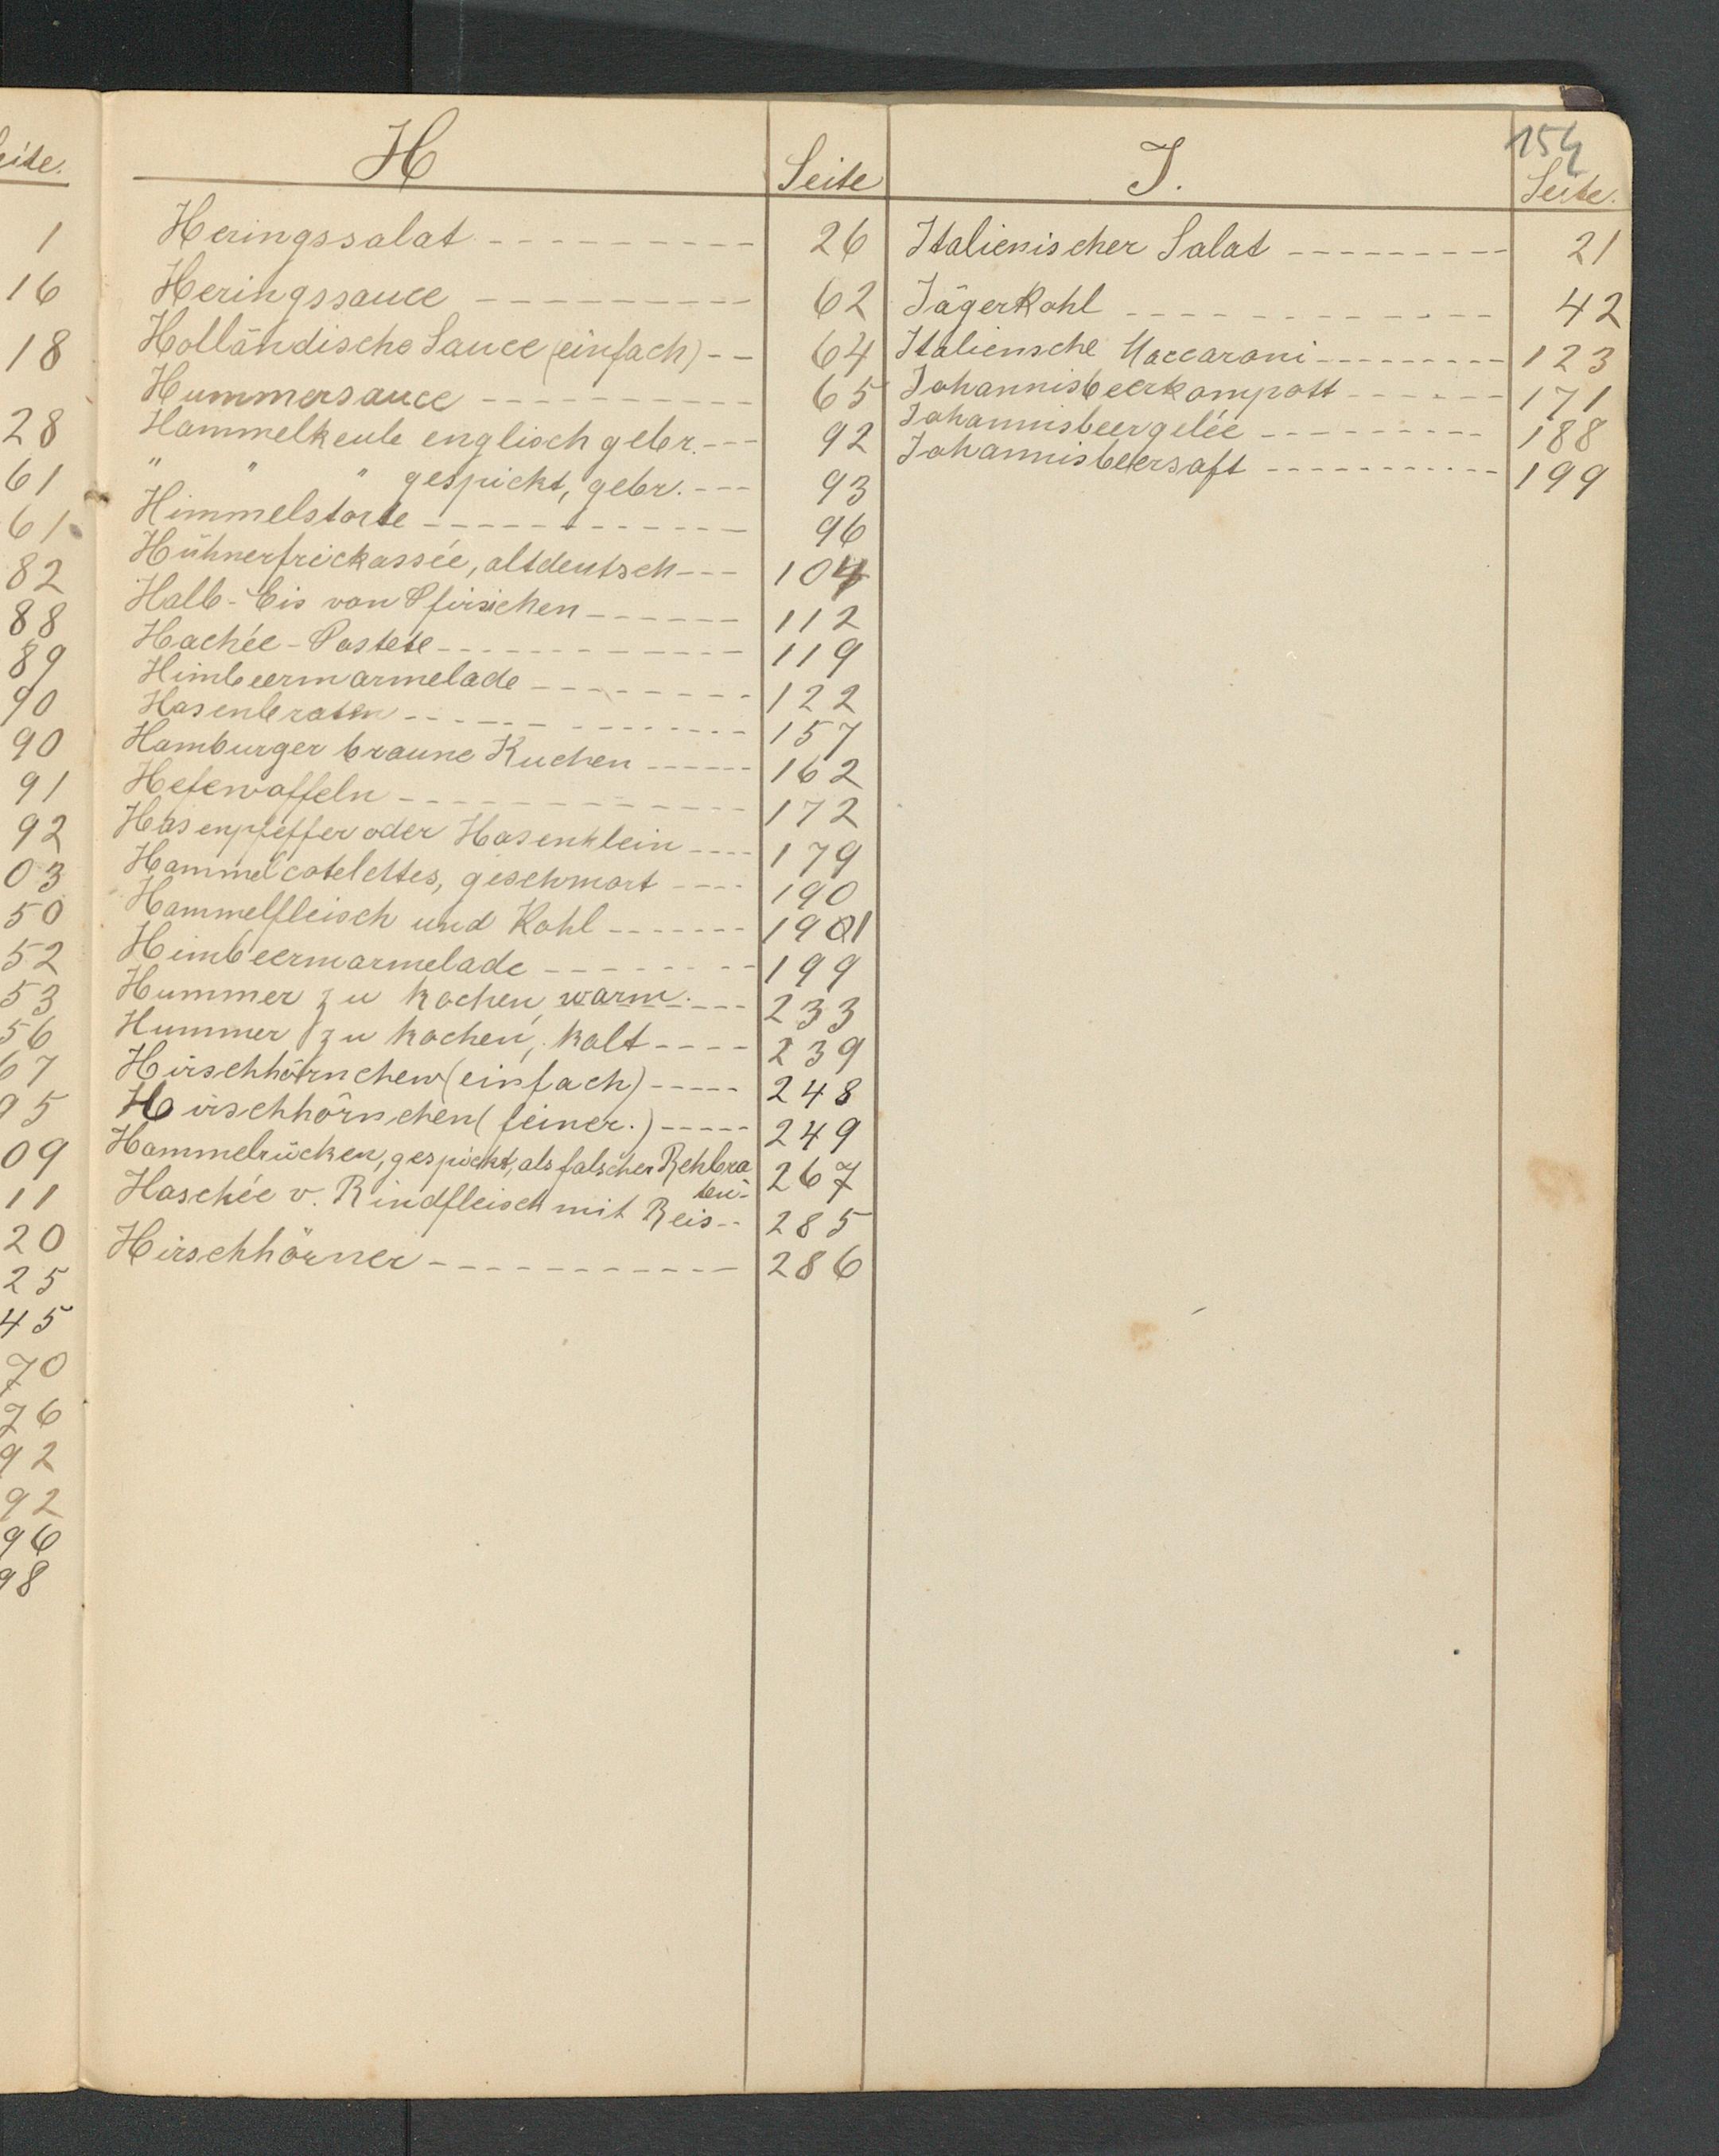 eite.
1
16
18
28
61
61
82
88
89
90
90
91
92
03
50
52
53
56
67
95
09
11
20
25
45
70
76
92
92
96
98
H Seite
Heringssalat - - - - - - - - - 26
Heringssauce - - - - - - - - - 62
Holländische Sauce (einfach) - - 64
Hummersauce - - - - - - - - - - 65
Hammelkeule englisch gebr. - - - 92
" " " gespickt, gebr. - - - 93
Himmelstorte - - - - - - - - - - - 96
Hühnerfrickassée, altdeutsch - - - 104
Halb-Eis von Pfirsichen - - - - - - 112
Hachée-Pastete - - - - - - - - - - - - 119
Himbeermarmelade - - - - - - - - 122
Hasenbraten - - - - - - - - - - - - - 157
Hamburger braune Kuchen - - - - - - 162
Hefewaffeln - - - - - - - - - - - - - 172
Hasenpfeffer oder Hasenklein - - - - 179
Hammelcotelettes, geschmort - - - - 190
Hammelfleisch und Kohl - - - - - - - 191
Himbeermarmelade - - - - - - - - 199
Hummer zu kochen, warm. - - - 233
Hummer zu kochen, kalt - - - - 239
Hirschhörnchen (einfach) - - - - - 248
Hirschhörnchen (feiner.) - - - - - 249
Hammelrücken, gespickt, als falscher Rehbra 267
ten-
Haschée v. Rindfleisch mit Reis - - 285
Hirschhörner - - - - - - - - - - - 286
154
J. Seite.
Italienischer Salat - - - - - - - - - 21
Jägerkohl - - - - - - - - - - - - - 42
Italiensche Maccaroni - - - - - - - - - 123
Johannisbeerkompott - - - - - - 171
Johannisbeergelée - - - - - - - - - 188
Johannisbeersaft - - - - - - - - - - - 199